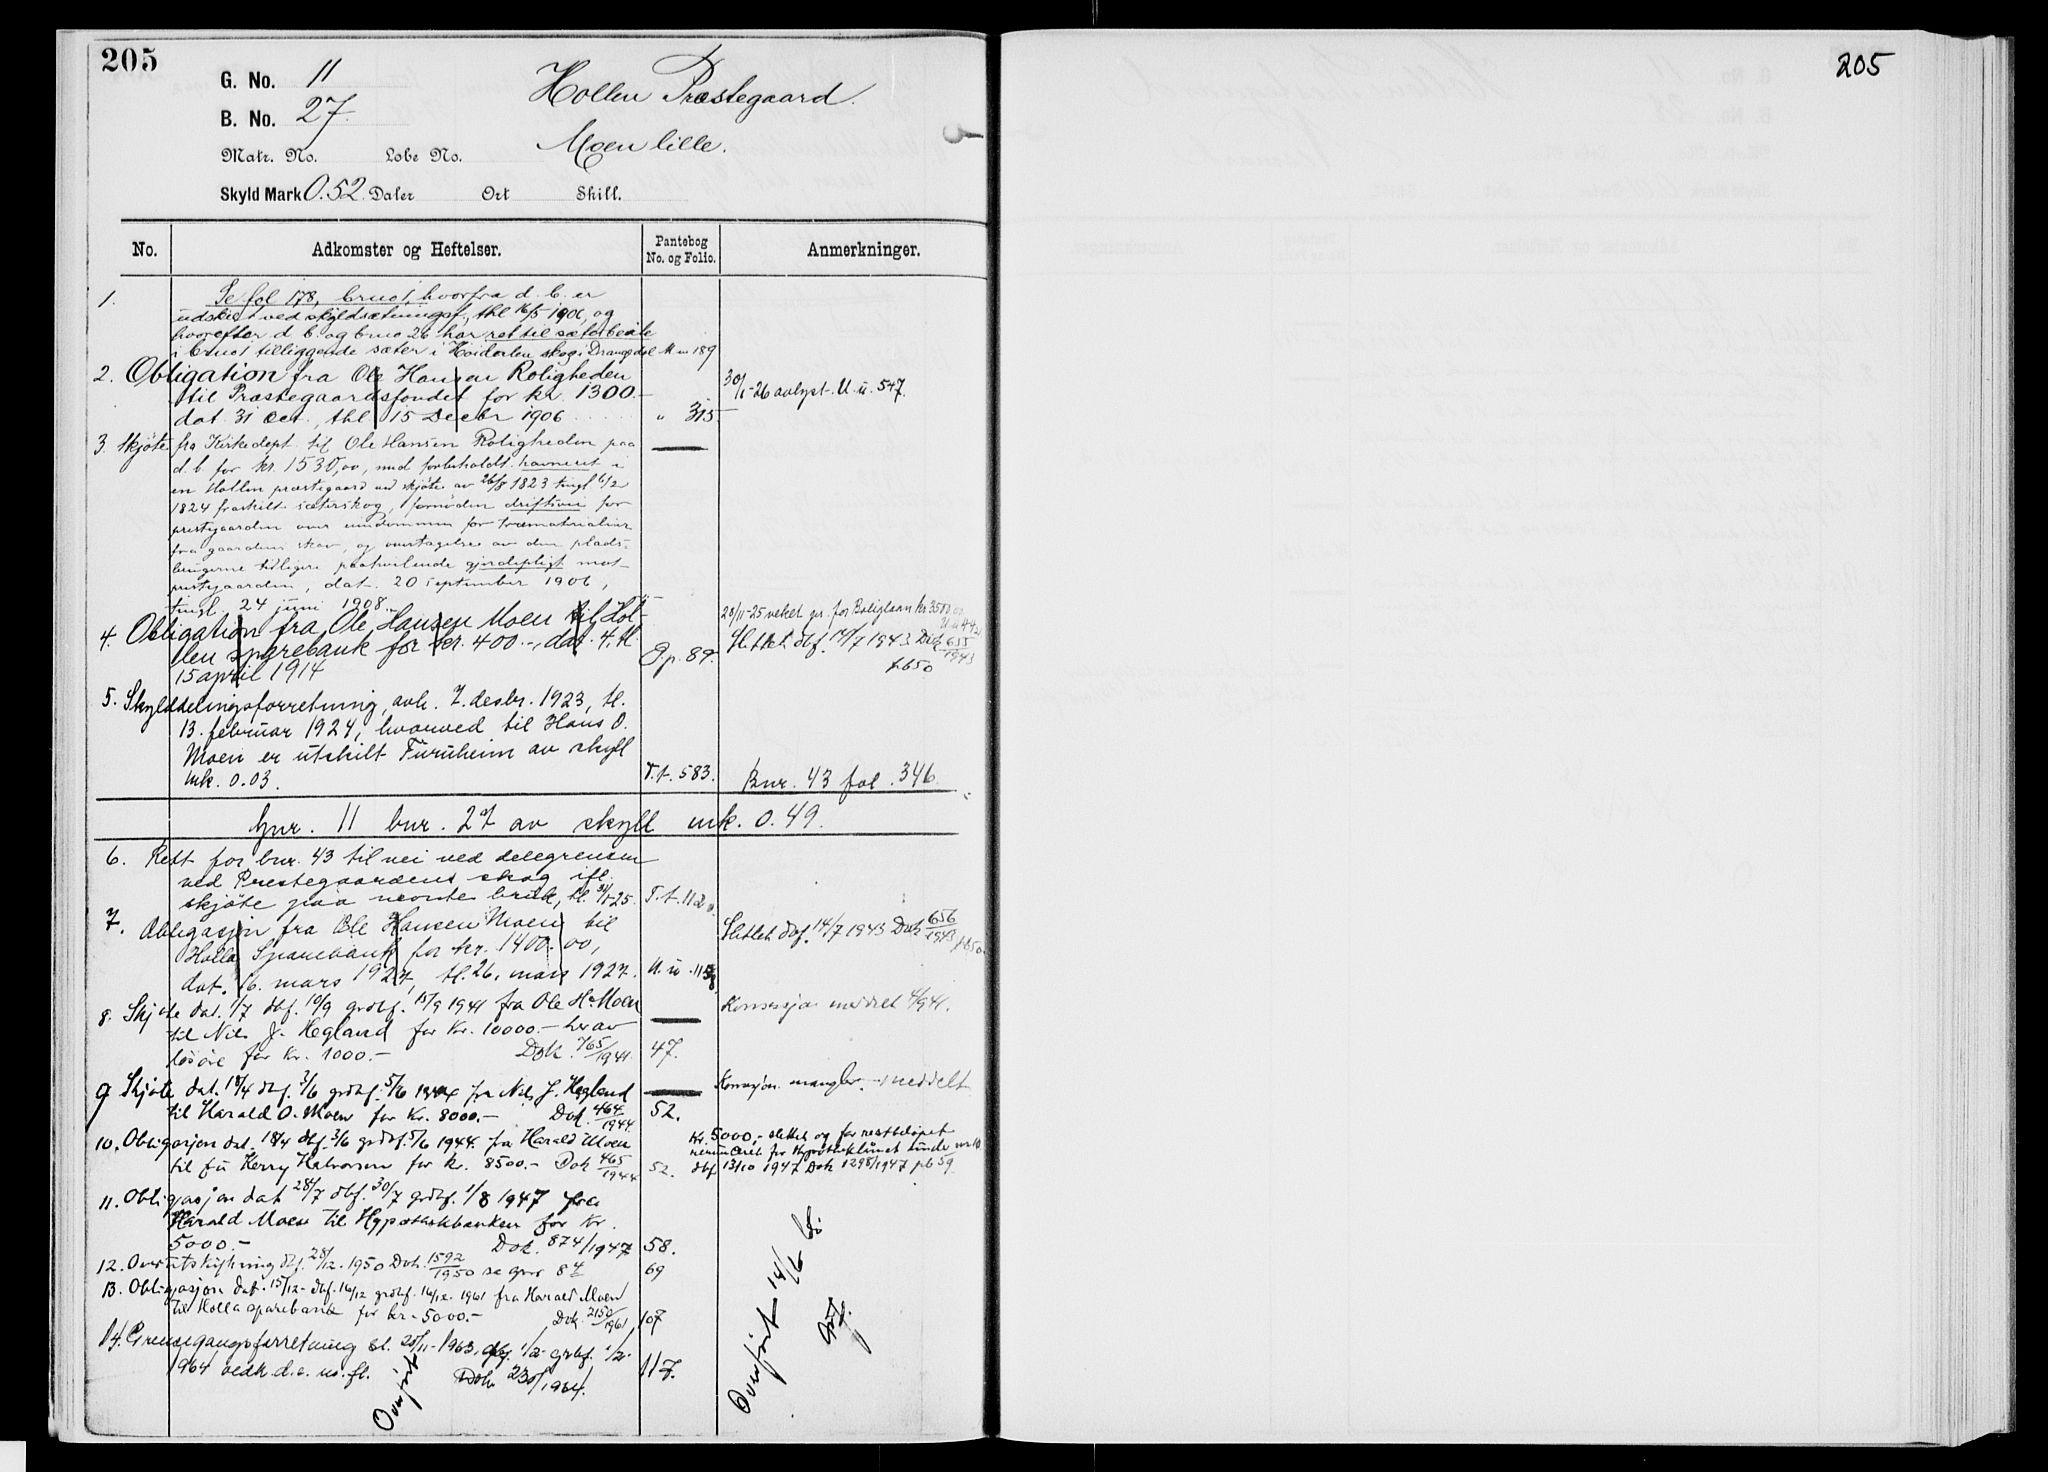 205
G. No. 11
Hollen Præstegaard.
B. No. 27.
Moen lille.
Matr. No. Løbe No.
Skyld Mark 0.52. Daler Ort Skill.
No. Adkomster og Heftelser. Pantebog No. og Folio. Anmerkninger.
1. Se fol 178, bruo 1, hvorfra d. b. er
udskilt ved skyldsætningsf., thl 16/5 1906, og
hvorefter d. b. og bruo 26 har ret til sæterbeite
i bruo 1 tilliggende sæter i Høidalen skog i Drangedal M m 189
2. Obligation fra Ole Hansen Roligheden
til Præstegaardsfondet for kr 1300.-
dat. 31 oct., thl 15 Decbr 1906 " 315.
30/1-26 avlyst. U. u. 547.
3. Skjøte fra Kirkedept. til Ole Hansen Roligheden paa
d. b for kr. 1530,00, med forbeholdt havneret i
en Hollen præstegaard ved skjøte av 26/8 1823 tingl 6/2
1824 fraskilt sæterskog, fornøden driftsvei for
prestegaarden over eiendommen for træmaterialier
fra gaardens skov, og overtagelse av den plads-
brugerne tidligere paahvilende gjerdepligt mot
prestegaarden, dat. 20 september 1906,
tingl. 24 juni 1908.
4. Obligation fra Ole Hansen Moen til Hol-
len sparebank for kr. 400.-, dat. 4, tl.
15 april 1914 P.p. 89.
20/11-25 veket pr. for Boliglaan kr 3500.00
Slettet dbf. 14/7 1943 Dok 655/1943
pb50
5. Skylddelingsforretning, avh. 7. desbr. 1923, tl.
13. februar 1924, hvorved til Hans O.
Moen er utskilt Furuheim av skyll
mk. 0.03. T.t. 583. Bnr. 43 fol. 346.
Gnr. 11 bnr. 27 av skyll mk. 0.49.
6. Rett for bnr. 43 til vei ved delegrensen
ved Prestegaardens skog ifl.
skjøte paa nevnte bruk, tl. 31/1-25. T.t. 1120
7. Obligasjon fra Ole Hansen Moen til
Holla Sparebank for kr. 1400.00,
dat. 16. mars 1927, tl. 26. mars 1927. U. u.
Slettet dbf. 14/7 1943 Dok 656/1943 pb50.
8. Skjøte dat. 1/7 dbf. 10/9 grdbf. 15/9 1941 fra Ole H. Moen
til Nils J. Hegland for Kr. 10000.- herav
løsøre for kr. 1000.- Dok. 765/1941 47.
Konsesjon meddelt 4/9 41.
9 Skjøte dat. 18/4 dbf. 2/6 grdbf. 5/6 1944 fra Nils J. Hegland
til Harald O. Moen for Kr. 8000.- Dok 464/1944 52.
Konsesjon mangler. - meddelt
10. Obligasjon dat. 18/4 dbf. 2/6 grdbf. 5/6 1944 fra Harald Moen
til fru Henny Halvorsen for kr. 8500.- Dok 465/1944 52.
Kr. 5000,- slettet og for restbeløpet
renunceret for Hypotheklånet under nr 10
dbf 13/10 1947 Dok 1298/1947 pb 59.
11. Obligasjon dat 28/7 dbf. 30/7 grdbf. 1/8 1947 fra
Harald Moen til Hypothekbanken for Kr.
5000.- Dok. 874/1947 58.
12. Overutskiftning dbf. 28/12. 1950 Dok. 1592/1950 se gnr 84 69
13. Obligasjon dat. 15/12- dbf. 16/12 grdbf. 16/12. 1961 fra Harald Moen
til Holla sparebank for kr. 5000.- Dok. 2150/1961 107
14. Grensegangsforretning sl. 20/11-1963, dbf 1/2- grbf. 1/2-
1964 vedk. d.e. m. fl. Dok 230/1964. 117.
Overført
Overført 14/6
205